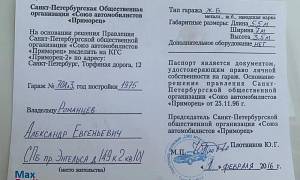 Санкт-Петербургская Общественное
организация «Союз автомобилистов
«Приморец»
На основании решения Правления
Санкт-Петербургской общественной
организации «Союз автомобилистов
«Приморец» выделить на КГС
«Приморец-2» по адресу:
Санкт-Петербург, Торфяная дорога, 12
Гараж № год постройки 1975
Владельцу Романцев
Александр Евгеньевич
СПб пр. Энгельса д 149 к 2 кв
(место жительства)
Max
Тип гаража Ж.Б.
металл., ж/б, заводская марка
Габаритные размеры: Длина 5,5 м
Ширина 3 м
Высота 2,5 м
Дополнительное оборудование НЕТ
Паспорт является документом,
удостоверяющим право личной
собственности на гараж. Основание:
решение Правления Санкт-Петербургской
общественной организации «Союз
автомобилистов «Приморец» от 25.11.96 г.
Председатель Санкт-Петербургской
общественной организации «Союз
автомобилистов «Приморец»
Плотников Ю.Г.
М.П.
февраля 2016 г.